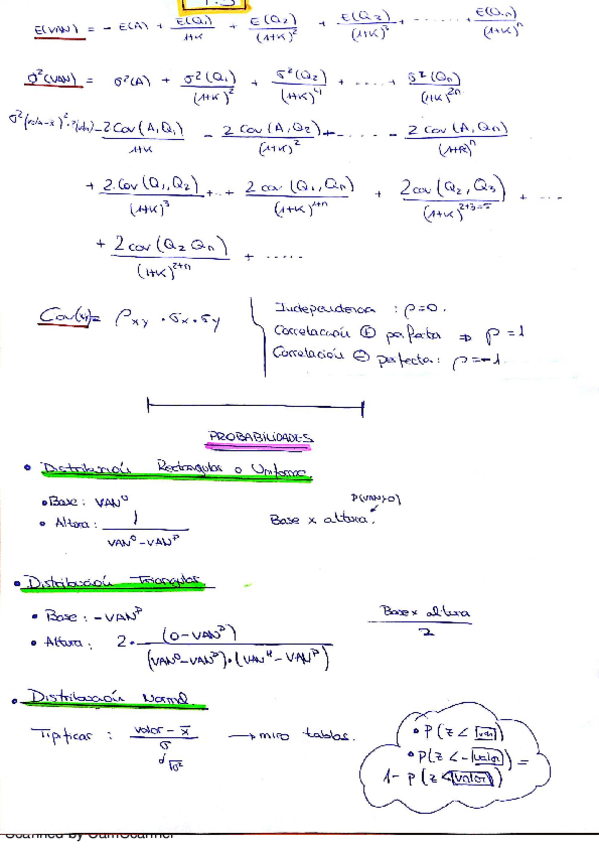 1.3
E(VAN) = - E(A) + E(Q1)/1+K + E(Q2)/(1+K)^2 + E(Q3)/(1+K)^3 + ...... + E(Qn)/(1+K)^n
σ²(VAN) = σ²(A) + σ²(Q1)/(1+K)^2 + σ²(Q2)/(1+K)^4 + ..... + σ²(Qn)/(1+K)^2n
- 2 Cov(A,Q1)/1+K - 2 Cov(A,Q2)/(1+K)^2 + - ..... - 2 Cov(A,Qn)/(1+K)^n
+ 2 Cov(Q1,Q2)/(1+K)^3 + .. + 2 cov(Q1,Qn)/(1+K)^1+n + 2 cov(Q2,Q3)/(1+K)^2+3=5 + ...
+ 2 cov(Q2 Qn)/(1+K)^2+n + .....
= ρxy · σx · σy
Independencia : ρ=0.
Correlación ⊕ perfecta ⇒ ρ=1
Correlación ⊖ perfecta: ρ=-1
PROBABILIDADES
• Distribución Rectangular o Uniforme.
• Base: VAN°
P(VAN>0)
• Altura: 1/VAN°-VANᴾ
Base x altura.
• Distribución Triangular
• Base: -VANᴾ
Base x altura/2
• Altura: 2 · (0-VANᴾ)/(VAN°-VANᴾ)·(VANᴴ-VANᴾ)
• Distribución Normal.
Tipificar : valor - x̄/σ → miro tablas.
√σ²
• P(z <
• P(z < -valor) =
1 - P(z < valor)
Scanned by CamScanner